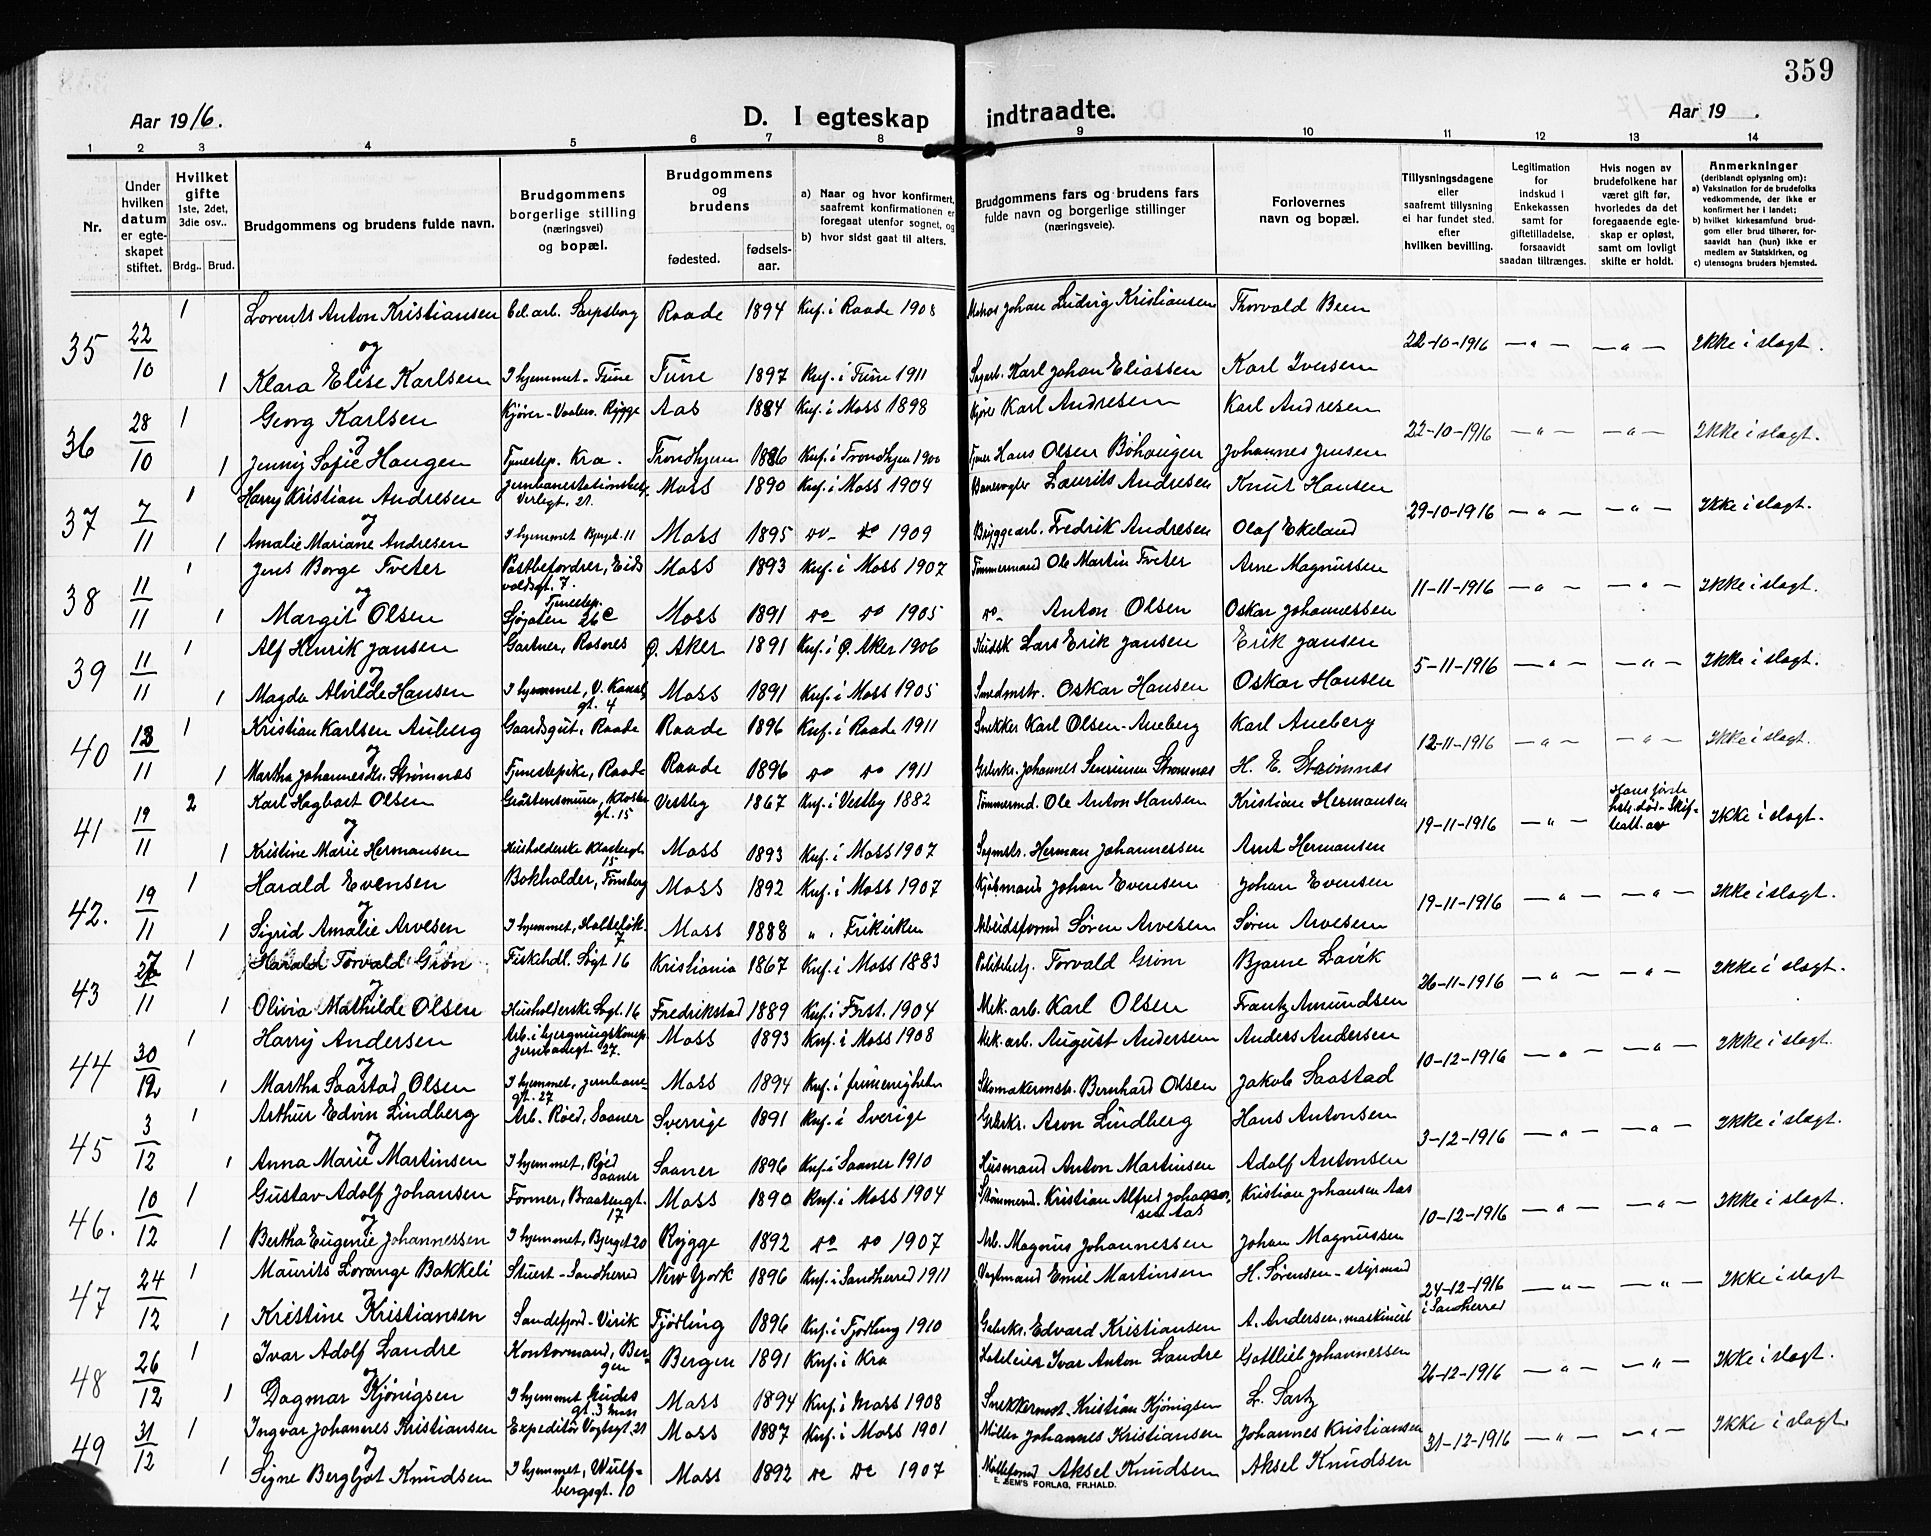 359
Aar 1916.
D. I egteskap indtraadte.
Aar 19 .
1 2 3 4 5 6 7 8 9 10 11 12 13 14
Nr.
Under hvilken datum er egteskapet stiftet.
Hvilket gifte 1ste, 2det, 3die osv..
Brdg.. Brud.
Brudgommens og brudens fulde navn.
Brudgommens borgerlige stilling (næringsvei) og bopæl.
Brudgommens og brudens
fødested. fødsels-aar.
a) Naar og hvor konfirmert, saafremt konfirmationen er foregaat utenfor sognet, og
b) hvor sidst gaat til alters.
Brudgommens fars og brudens fars fulde navn og borgerlige stillinger (næringsveie).
Forlovernes navn og bopæl.
Tillysningsdagene eller saafremt tillysning ei har fundet sted. efter hvilken bevilling.
Legitimation for indskud i Enkekassen samt for giftetilladelse, forsaavidt saadan tiltrænges.
Hvis nogen av brudefolkene har været gift før, hvorledes da det foregaaende egteskap er opløst, samt om lovligt skifte er holdt.
Anmerkninger (deriblandt oplysning om):
a) Vaksination for de brudefolks vedkommende, der ikke er konfirmert her i landet;
b) hvilket kirkesamfund brudgom eller brud tilhører, forsaavidt han (hun) ikke er medlem av Statskirken, og
c) utensogns bruders hjemsted.
35 22/10 1 Lorents Anton Kristiansen Cel.arb. Sarpsborg Raade 1894 Knf. i Raade 1908 Matros Johan Ludvig Kristiansen Thorvald Been 22-10-1916 — „ — — „ — Ikke i slagt.
og
1 Klara Elise Karlsen I hjemmet - Tune Tune 1897 Knf. i Tune 1911 Sagarb. Karl Johan Eliassen Karl Iversen
36 28/10 1 Georg Karlsen Kjører - Vaaler. Rygge Aas 1884 Knf. i Moss 1898 Kjører Karl Andresen Karl Andresen 22-10-1916 — „ — — „ — Ikke i slagt.
og
1 Jenny Sofie Haugen Tjenestep. Kra. Trondhjem 1886 Knf. i Trondhjem 1900 Hans Olsen Bøhaugen Johannes Jensen
37 7/11 1 Harry Kristian Andresen Jernbanestationsbetj. Verlegt. 21. Moss 1890 Knf. i Moss 1904 Banevogter Laurits Andresen Knut Hansen 29-10-1916 — „ — — „ — Ikke i slagt.
og
1 Amalie Mariane Andresen I hjemmet Bjerget. 11 Moss 1895 do - do 1909 Bryggearb. Fredrik Andresen Olaf Ekeland
38 11/11 1 Jens Borge Tveter Postbefordrer, Eidsvoldsgt. 7. Moss 1893 Knf. i Moss 1907 Tømmermand Ole Martin Tveter Arne Magnussen 11-11-1916 — „ — — „ — Ikke i slagt.
og
1 Margit Olsen Tjenestep. Sjøgaten 26 c Moss 1891 do do 1905 do - Anton Olsen Oskar Johannessen
39 11/11 1 Alf Henrik Jansen Gartner, Rosnes Ø. Aker 1891 Knf. i Ø. Aker 1906 Kudsk Lars Erik Jansen Erik Jansen 5-11-1916 — „ — — „ — Ikke i slagt.
og
1 Magda Alvilde Hansen I hjemmet, V. Kanalgt. 4 Moss 1891 Knf. i Moss 1905 Smedmstr. Oskar Hansen Oskar Hansen
40 /11 1 Kristian Karlsen Auberg Gaardsgut, Raade Raade 1896 Knf. i Raade 1911 Snekker Karl Olsen-Aneberg Karl Aneberg 12-11-1916 — „ — — „ — Ikke i slagt.
og
1 Martha Johannesdtr. Strømnæs Tjenestepike, Raade Raade 1896 do do 1911 Grbrkr. Johannes Sørensen Strømnæs H. E. Strømnæs
41 19/11 2 Karl Hagbart Olsen Gråstensmurer, Klostergt. 15 Vestby 1867 Knf. i Vestby 1882 Tømmermd. Ole Anton Hansen Kristian Hermansen 19-11-1916 — „ — Hans første hstr. død - Skifteatt. av Ikke i slagt.
og
1 Kristine Marie Hermansen Husholderske Klostergt. 15 Moss 1893 Knf. i Moss 1907 Sagmstr. Herman Johannessen Arnt Hermansen
42. 19/11 1 Harald Evensen Bokholder, Tønsberg Moss 1892 Knf. i Moss 1907 Kjøbmand Johan Evensen Johan Evensen 19-11-1916 — „ — — „ — Ikke i slagt.
og
1 Sigrid Amalie Arvesen I hjemmet, Holteløk. 7 Moss 1888 „ . Frikirken Arbeidsformd Søren Arvesen Søren Arvesen
43 /11 1 Harald Torvald Grøn Fiskehdl. Sogt 16 Kristiania 1867 Knf. i Moss 1883 Politibetj. Torvald Grøn Bjarne Lavik 26-11-1916 — „ — — „ — Ikke i slagt.
og
1 Olivia Mathilde Olsen Husholderske Sogt. 16 Fredrikstad 1889 Knf. i Frst. 1904 Mek. arb. Karl Olsen Frantz Amundsen
44 30/12 1 Harry Andersen Arb. i bjergningskomp. Jernbanegt 27. Moss 1893 Knf. i Moss 1908 Mek. arb. August Andersen Anders Andersen 10-12-1916 — „ — — „ — Ikke i slagt.
og
1 Martha Saastad Olsen I hjemmet, Jernbanegt. 27 Moss 1894 Knf. i frimenigheten Skomakermstr. Bernhard Olsen Jakob Saastad
45 3/12 1 Arthur Edvin Lindberg Arb. Røed, Saaner Sverrige 1891 Knf. i Sverige Grbrkr. Aron Lindberg Hans Antonsen 3-12-1916 — „ — — „ — Ikke i slagt.
og
1 Anna Marie Martinsen I hjemmet, Røed Saaner Saaner 1896 Knf. i Saaner 1910 Husmand Anton Martinsen Adolf Antonsen
46. 10/12 1 Gustav Adolf Johansen Former, Braatengt. 17 Moss 1890 Knf. i Moss 1904 Kristian Alfred Johansen Aas Kristian Johansen Aas 10-12-1916 — „ — — „ — Ikke i slagt.
og
1 Bertha Eugenie Johannessen I hjemmet, Bjerget 20 Rygge 1892 do do 1907 Arb. Magnus Johannessen Johan Magnussen
47 24/12 1 Maurits Lorange Bakkeli Stuert - Sandherred New York 1896 Knf. i Sandherred 1911 Vagtmand Emil Martinsen H. Sørensen - styrmand 24-12-1916 i Sandherred — „ — — „ — Ikke i slagt
og
1 Kristine Kristiansen Sandefjord - Virik Tjødling 1896 Knf. i Tjødling 1910 Grbrkr. Edvard Kristiansen A. Andersen, maskinist
48 26/12 1 Ivar Adolf Landre Kontormand, Bergen Bergen 1891 Knf. i Kra Hoteleier Ivar Anton Landre Gottlieb Johannessen 26-12-1916 — „ — — „ — Ikke i slagt.
og
1 Dagmar Kjønigsen I hjemmet gt. 3 Moss Moss 1894 Knf. i Moss 1908 Snekkermst. Kristian Kjønigsen L. Sartz
49 31/12 1 Ingvar Johannes Kristiansen Expeditør Vogtsgt. 21 Moss 1887 Knf. i Moss 1901 Møller Johannes Kristiansen Johannes Kristiansen 31-12-1916 — „ — — „ — Ikke i slagt
og
1 Signe Bergljot Knudsen I hjemmet, Wulfsbergsgt. 10 Moss 1892 do do 1907 Mølleformd Aksel Knudsen Aksel Knudsen
E. SEM'S FORLAG, FR.HALD.